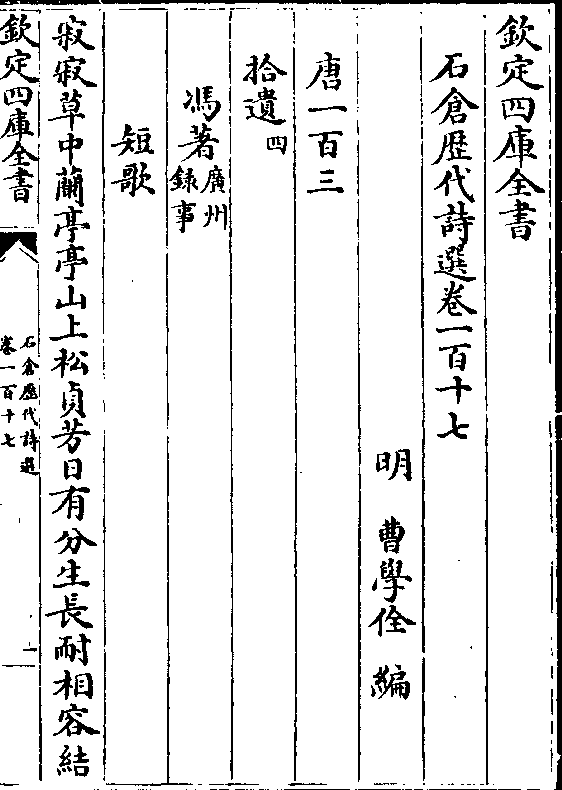 欽定四庫全書
石倉歷代詩選卷一百十七
明 曹學佺 編
唐一百三
拾遺四
馮著廣州錄事
短歌
寂寂草中蘭亭亭山上松貞芳日有分生長耐相容結
欽定四庫全書
石倉歷代詩選
卷一百十七
一